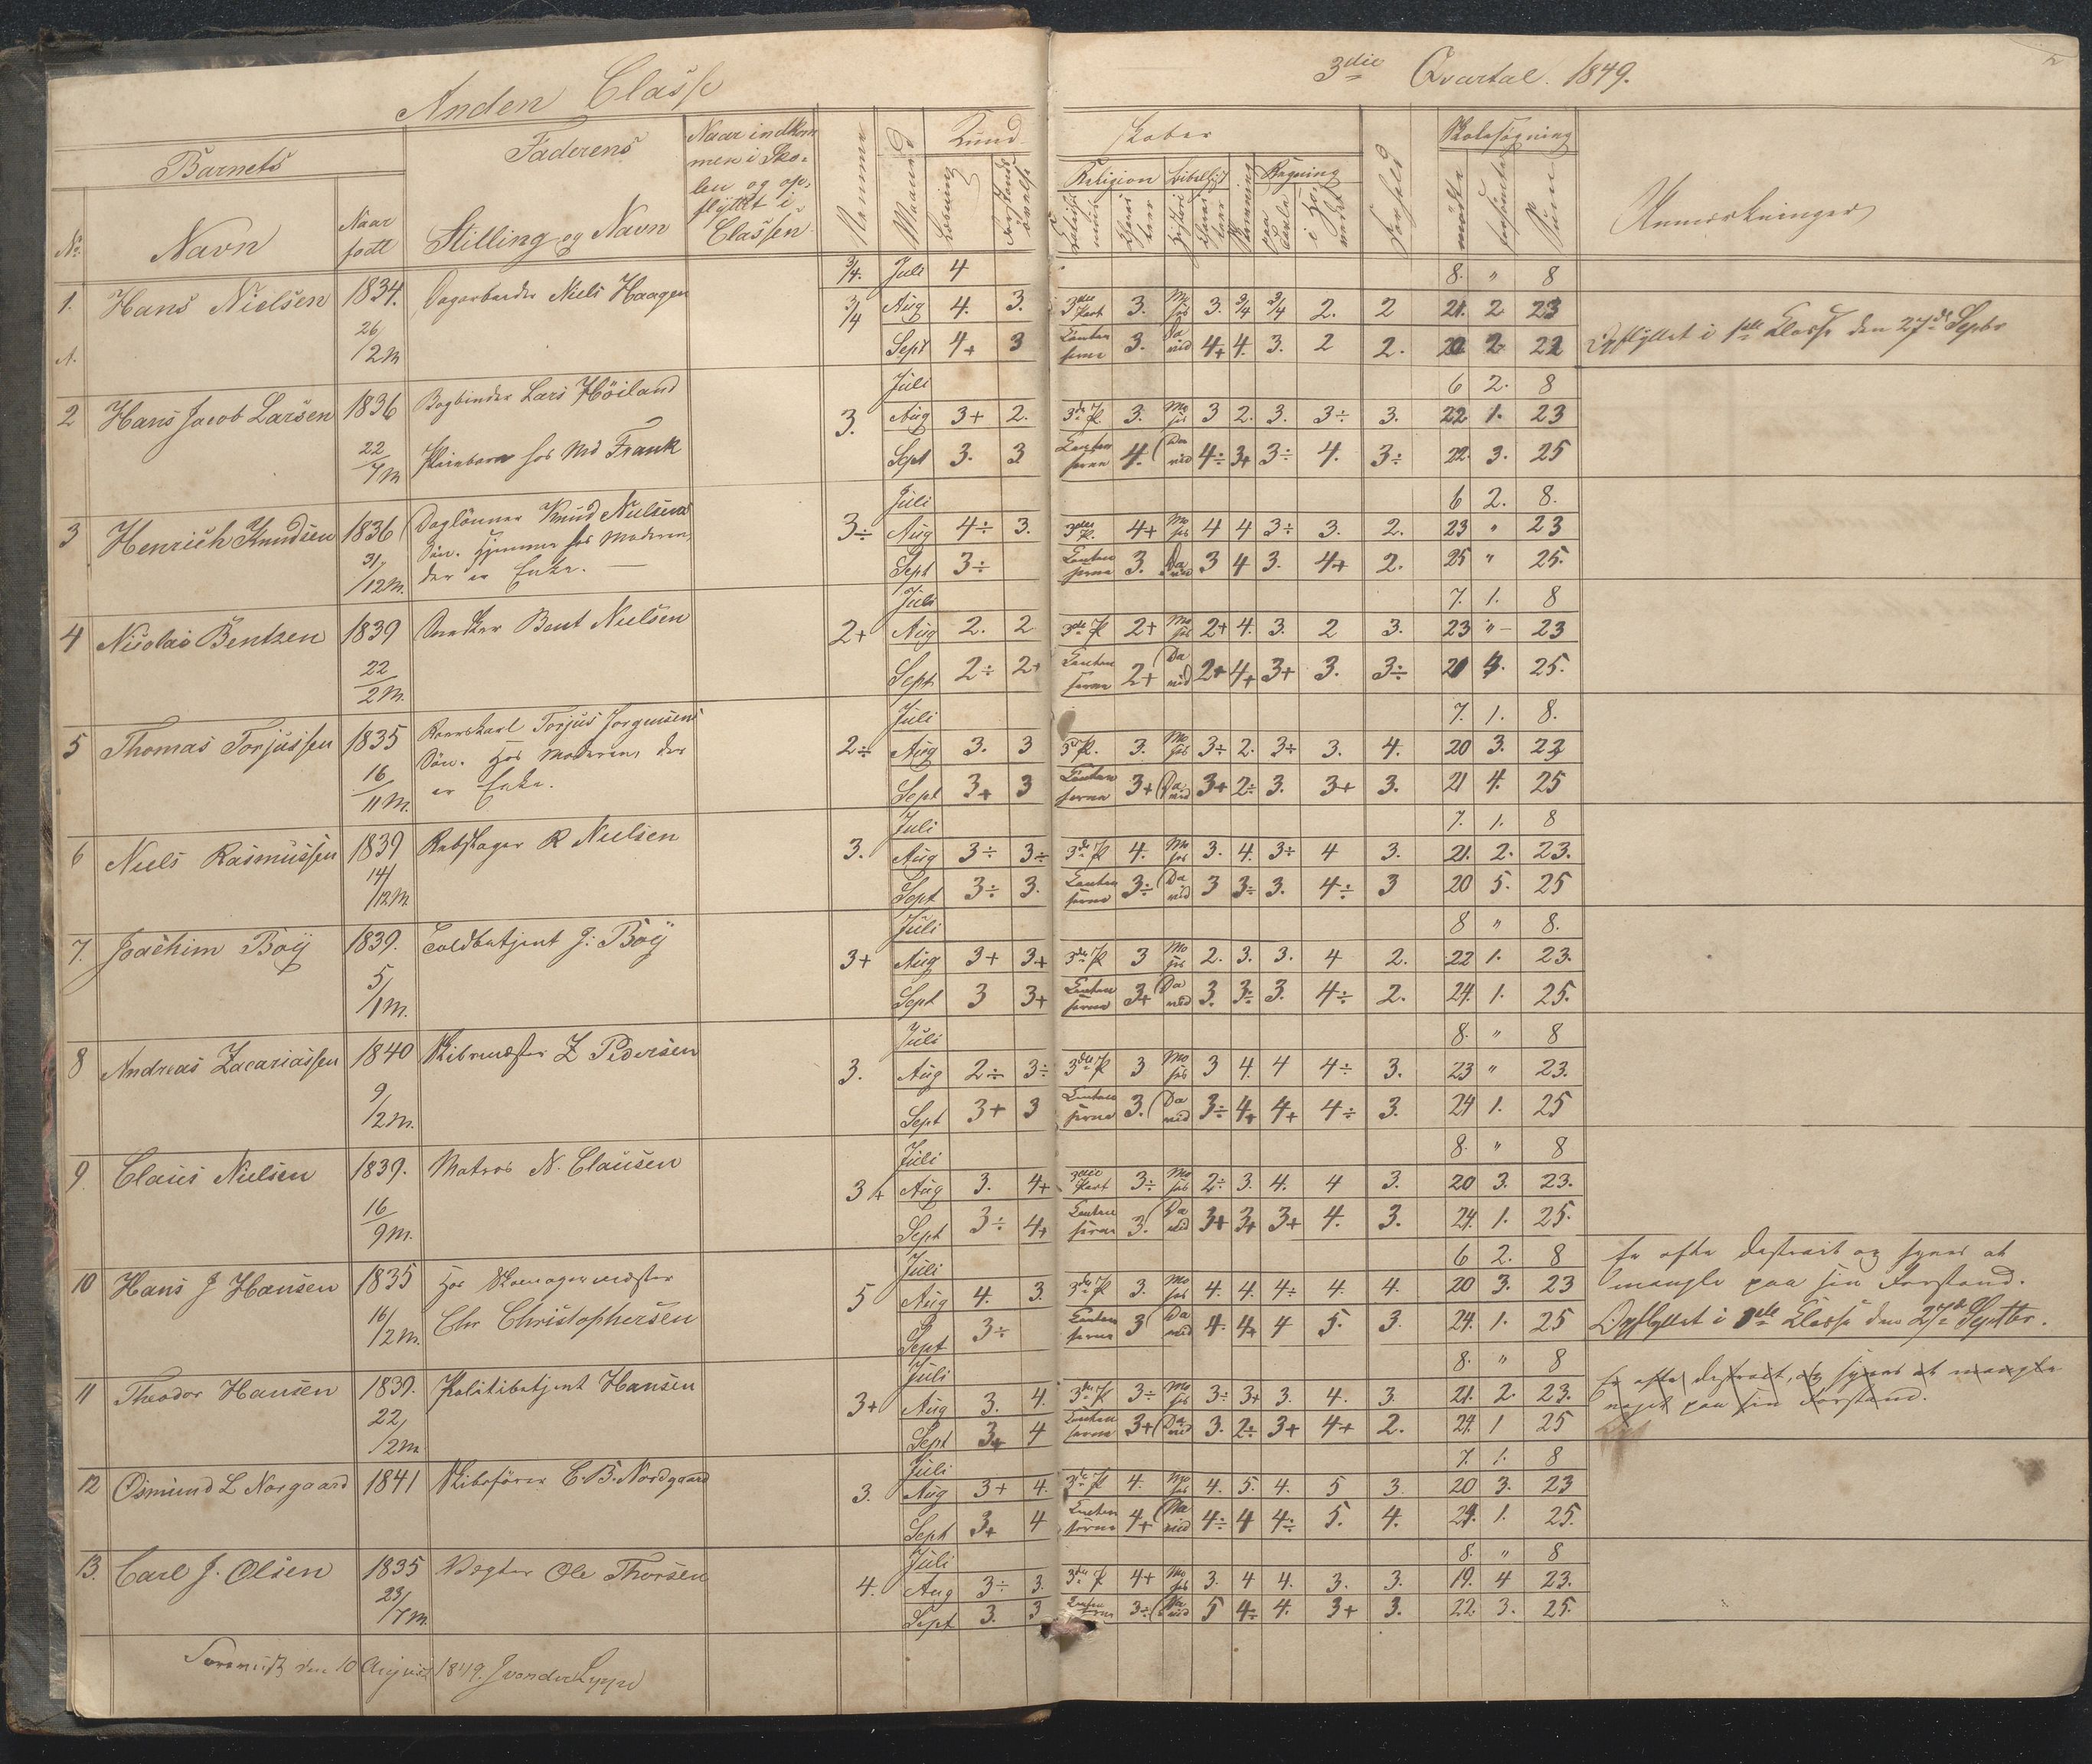 Anden Classe
3die Qvartal. 1849.
Barnets
Faderens
Naar indkom
men i Sko-
len og op-
flyttet i
Classen
Nummer
Maaned
Kund
skaber
Religion
Regning
Forhold
Skolesøgning
mødte
forsömte
Sum
Anmærkninger
No
Navn
Naar
född
Stilling og Navn
Læsning
1. Hans Nielsen 1834. 26/2 M Niels Haagen
3/4. Juli 4 8. " 8
3/4 Aug 4. 3. 3die Part 3. Mo ses 3. 3/4 3/4 2. 2 21. 2 23
Sept 4+ 3 3. Da vid 4+ 4. 3. 2 2. 20 2 22 Opflyttet i 1ste Classe den 27de Septbr
2 Hans Jacob Larsen 1836 22/7 M Bogbinder Lars Höiland
Pleiebarn hos Md Frank
Juli 6 2. 8
3. Aug 3+ 2. 3de P. 3. Mo ses 3 2. 3. 3÷ 3. 22 1. 23
Sept 3. 3 4. Da vid 4÷ 3+ 3÷ 4. 3÷ 22. 3. 25
3 Henrich Knudsen 1836 31/12 M. Daglönner Knud Nielsens
Sön. Hjemme hos Moderen,
der er Enke.
Juli 6 2. 8.
3÷ Aug 4÷ 3. 3die P. 4+ Mo ses 4 4 3÷ 3. 2. 23 " 23
Sept 3÷ 3. Da vid 3 4 3. 4+ 2. 25 " 25.
4 Nicolai Bentzen 1839 22/2 M. Bent Nielsen
Juli 7. 1. 8
2+ Aug 2. 2 3de P 2+ Mo ses 2+ 4. 3. 2 3. 23 " 23
Sept 2÷ 2+ 2+ Da vid 2+ 4+ 3+ 3. 3÷ 21 4. 25.
5 Thomas Torjussen 1835 16/11 M. Torjus Jorgensens
Sön. Hos Moderen, der
er Enke.
Juli 7. 1. 8.
2÷ Aug 3. 3 3 P. 3. Mo ses 3÷ 2. 3÷ 3. 4. 20 3. 23
Sept 3+ 3 3+ Da vid 3+ 2÷ 3. 3+ 3. 21 4. 25
6 Niels Rasmussen 1839 14/12 M Rebslager R Nielsen
Juli 7. 1. 8
3. Aug 3÷ 3÷ 3de P 4. Mo ses 3. 4. 3÷ 4 3. 21. 2. 23.
Sept 3÷ 3. 3÷ Da vid 3 3÷ 3. 4÷ 3 20 5. 25
7. Joachim Boÿ 1839. 5/1 M. Toldbetjent J: Boÿ
Juli 8 " 8.
3+ Aug 3+ 3+ 3de P 3 Mo ses 2. 3. 3. 4 2. 22 1. 23.
Sept 3 3+ 3+ Da vid 3. 3÷ 3. 4÷ 2. 24. 1. 25.
8 Andreas Zacariassen 1840 9/12 M. Z Pedersen
Juli 8. " 8
3. Aug 2÷ 3÷ 3die P 3 Mo ses 3 4. 4 4÷ 3. 23 " 23.
Sept 3+ 3 3. Da vid 3÷ 4+ 4+ 4÷ 3. 24 1. 25
9. Claus Nielsen 1839. 16/9 M. Matros N. Clausen
Juli 8. " 8
3+ Aug 3. 4+ 3die Part 3÷ Mo ses 2÷ 3. 4. 4 3. 20 3. 23.
Sept 3÷ 4+ 3. Da vid 3+ 3+ 3+ 4. 3. 24. 1. 25.
10 Hans J Hansen 1835 16/12 M. Hos Skomagermester
Chr Christophersen
Juli 6 2. 8 Er ofte destrait og synes at
5 Aug 4. 3. 3de P 3. Mo ses 4. 4. 4÷ 4. 4. 20 3. 23 mangle paa sin Forstand.
Sept 3÷ 3 Da vid 4. 4+ 4 5. 3. 24. 1. 25 Opflyttet i 1ste Classe den 27de Septbr.
11 Theodor Hansen 1839. 22/2 M Politibetjent Hansen
Juli 8. " 8 Er ofte destrait, og synes at mangle
3+ Aug 3. 4. 3de P 3÷ Mo ses 3÷ 3+ 3. 4. 3. 21. 2. 23. noget paa sin Forstand.
Sept 3+ 4 3+ Da vid 3. 2÷ 3+ 4+ 2. 24. 1 25
12 Osmund L Norgaard 1841 Skibsförer C. B. Nordgaard
Juli 7. 1. 8
3. Aug 3+ 4. 3de P 4. Mo ses 4. 5. 4. 5 3. 20 3. 23
Sept 3+ 4 4+ Da vid 4÷ 4 4÷ 5. 4. 24. 1. 25.
13. Carl J. Olsen 1835 23/7 M. Vægter Ole Thorsen
Juli 8. " 8
4. Aug 3÷ 3. 3de P 4+ Mo ses 3. 4 4. 3. 3. 19. 4 23.
Sept 3. 3 3÷ Da vid 5 4÷ 4. 3+ 3. 22. 3. 25.
den 10 August 1849. J von der Lippe